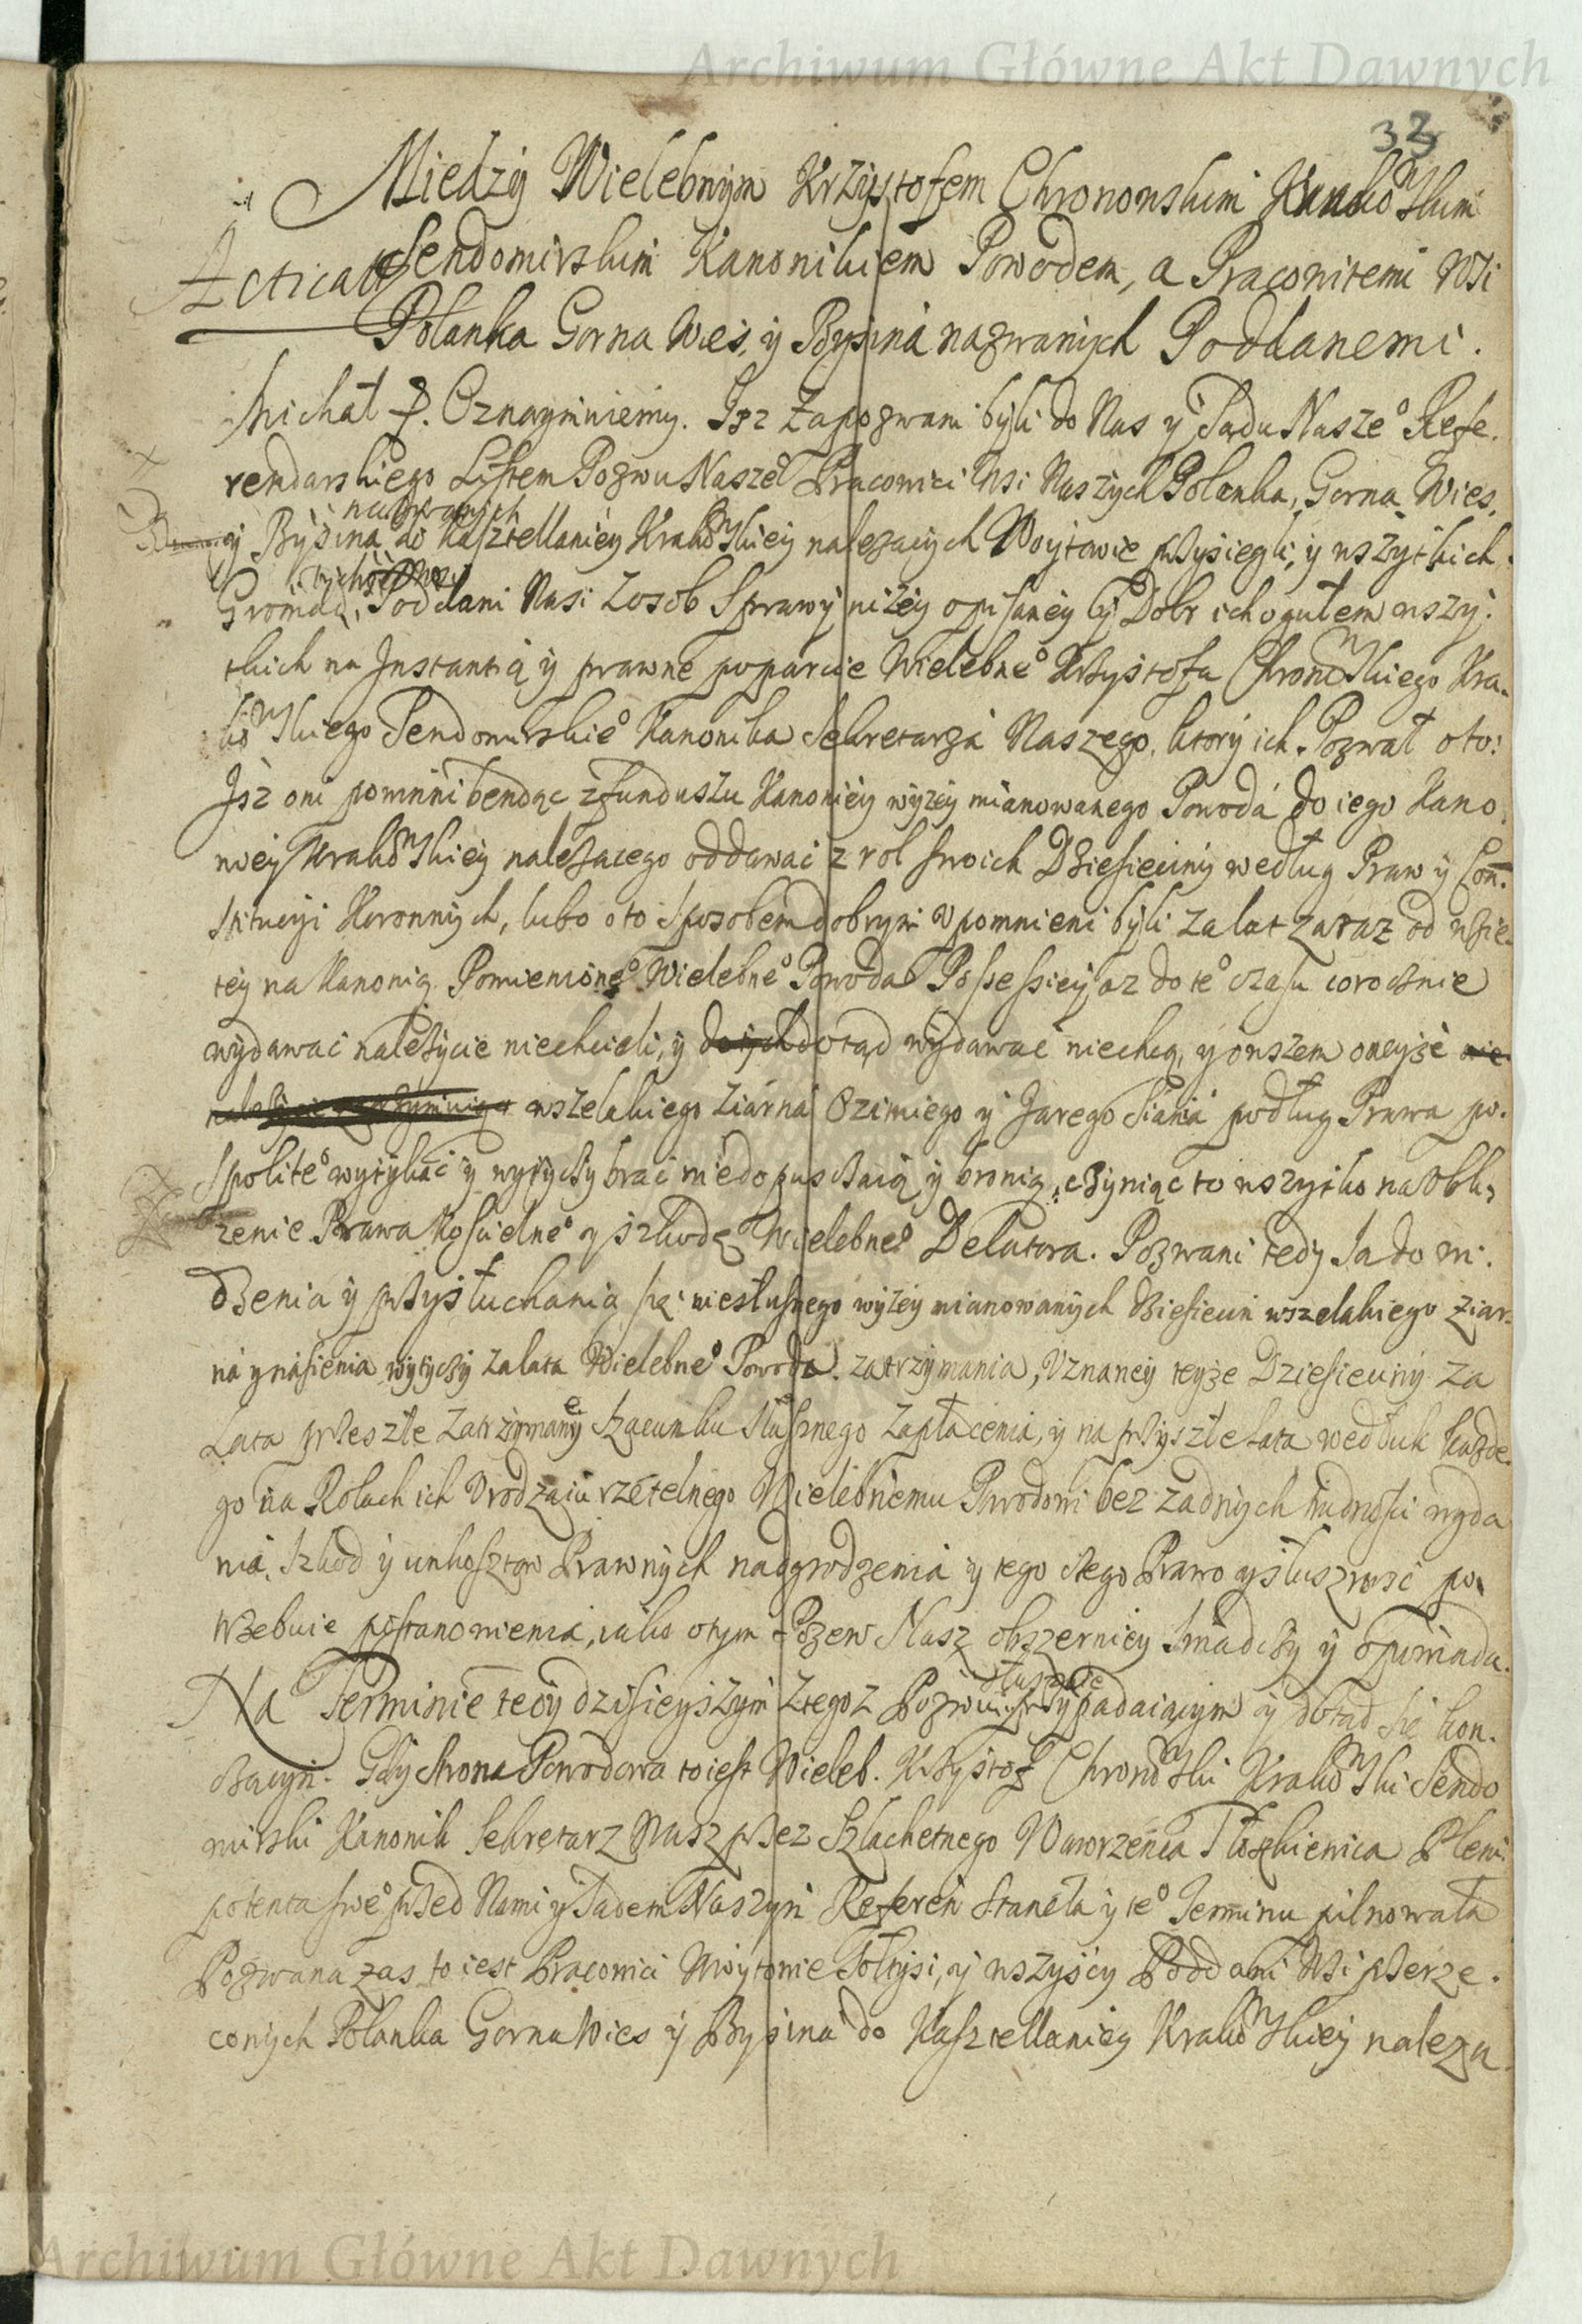 Archiwum Główne Akt Dawnych
33
Miedzy Wielebnym Krzysztofem Chronowskim Krakowskim
Acticat
Sendomirskim Kanonikiem Powodem, a Pracowitemi Wsi
Polanka Gorna Wies, y Bysina nazwanych Poddanemi.
Michał P. Oznaymuiemy. Isz Zapozwani byli do Nas y Sądu Nasze° Refe.
rendarskiego Listem Pozwu Nasze° Pracowici Wsi Naszych Polanka, Gorna Wies,
nazwanych
y Bysina do Kasztellaniey Krakowskiey należących Woytowie przysiegli, y wszytkich
tychże Wsi
Gromad, Poddani Nasi z osob Sprawy niżey opisaney y Dobr ich ogułem wszy.
tkich na Instantią y prawne poparcie Wielebne° Krzysztofa Chronowskiego Kra.
kowskiego Sendomirskie° Kanonika Sekretarza Naszego, ktory ich Pozwał o to:
Isż oni powinni bendąc z funduszu Kanoniey wyżey mianowanego Powoda do iego Kano
niey Krakowskiey należacego oddawać z rol swoich Dziesieciny według Praw y Con.
stitucyi Koronnych, lubo o to sposobem dobrym upomnieni byli za lat zaraz od wzie
tey na Kanonią Pomienione° Wielebne° Powoda Possessiey, az do te° czasu corocznie
wydawać należycie niechcieli, y dotąd wydawać niechcą, y owszem oneyże
wszelakiego ziarna Ozimiego y Jarego siania podług Prawa po.
spolite° wytykać y wytyczy brać niedopusczaią y bronią, czyniąc to wszytko na obli,
żenie Prawa Kościelne° y szkodę Wielebne° Delatora. Pozwani tedy sa do wi.
dzenia y przysłuchania się niesłusznego wyżey mianowanych dziesiecin wszelakiego ziar.
na y nasienia wytyczy za lata Wielebne° Powoda zatrzymania, uznaney teyże Dziesieciny za
Lata przeszłe zatrzymaney szacunku słusznego zapłacenia, y na przyszłe Lata wedłuk każde.
go na Rolach ich urodzaiu rzetelnego Wielebnemu Powodowi bez żadnych trudności wyda
nia, szkod y unkosztow Prawnych nadgrodzenia y tego czego Prawo y słuszność po
trzebuie postanowienia, iako o tym Pozew Nasz obszerniey świadczy y opowiada.
Na Terminie tedy dzisieyszym z tegoz Pozwu słusznie przypadaiącym y dotąd się kon.
tynuuiącym. Gdy strona Powodowa to iest Wieleb. Krzysztof Chronowski Krakowski Sendo
mirski Kanonik Sekretarz Nasz przez Szlachetnego Wawrzeńca Pleni.
potenta swe° przed Nami y Sadem Naszym Referen Staneła y te° Terminu pilnowała
Pozwana zas to iest Pracowici Woytowie Sołtysi, y wszyscy Poddani Wsi przerze.
conych Polanka Gorna Wies y Bysina do Kasztellaniey Krakowskiey należa
Archiwum Główne Akt Dawnych